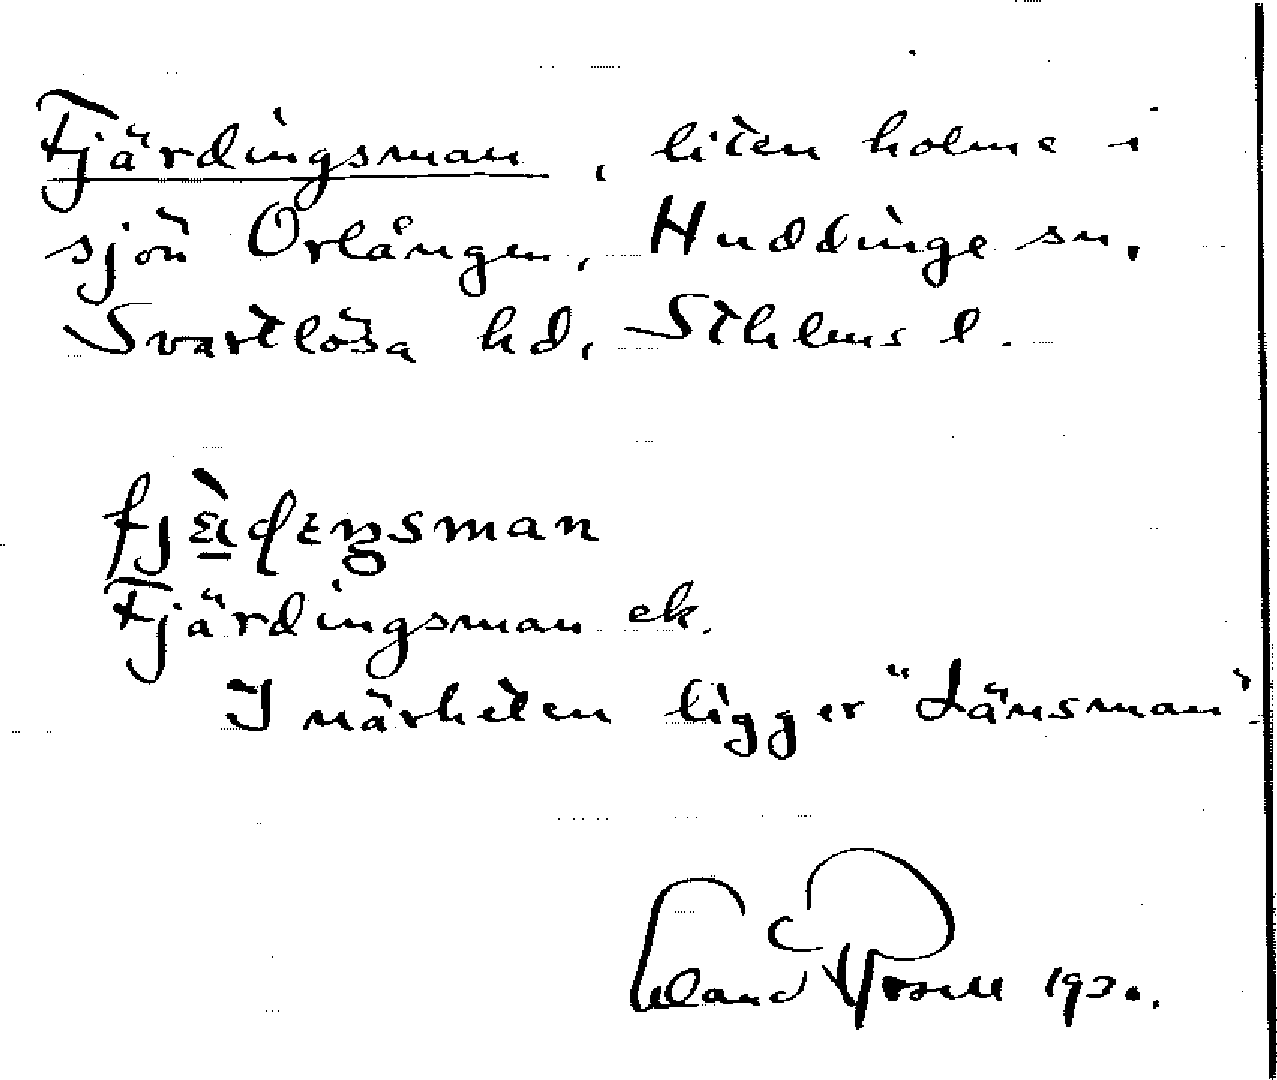 Fjärdingsman, liten holme i
sjön Orlången, Huddinge sn,
Svartlösa hd, Sthlms l.
Fjärdingsman ek.
I närheten ligger "Länsman".
Erland Rosell 1930.